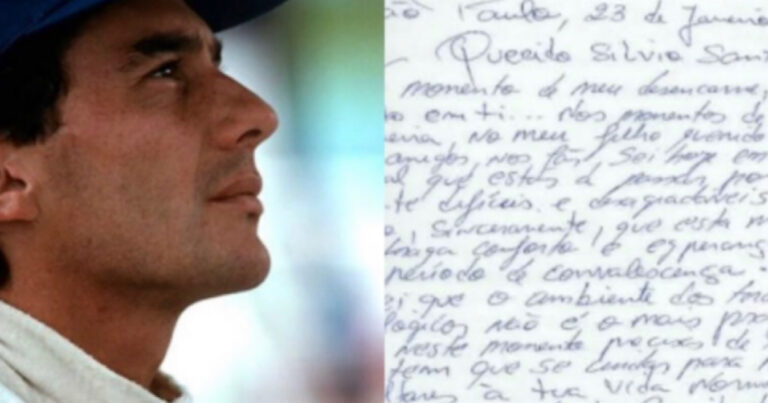 ão Paulo, 23 de Janeiro
Querido Silvio San
momento de meu desencarne,
em ti... Nos momentos de
No meu filho querido
amigos, nos fãs, Sei bem em
que estás a passar por
te difíceis e desagradáveis
, Sinceramente, que esta m
traga conforto e esperanç
período de convalescença.
ei que o ambiente dos
lógicos não é o mais pra
neste momento precisas de
tem que se cuidas para
à tua vida norm